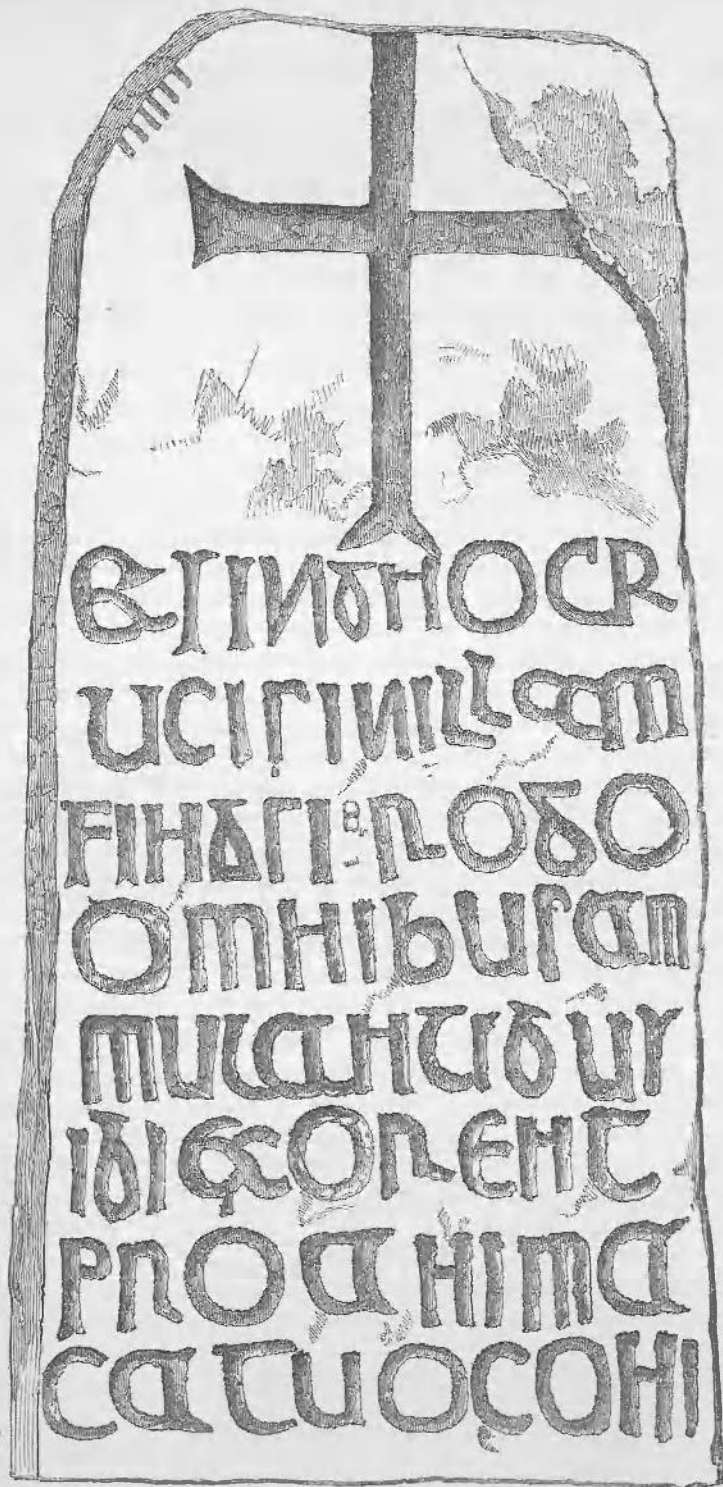 ET SINGNO CR
UCIS IN ILLAM
FINGSI : ROGO
OMNIBUS AM
MULANTIBUS
IBI EXORENT
PRO ANIMA
CATUOCONI